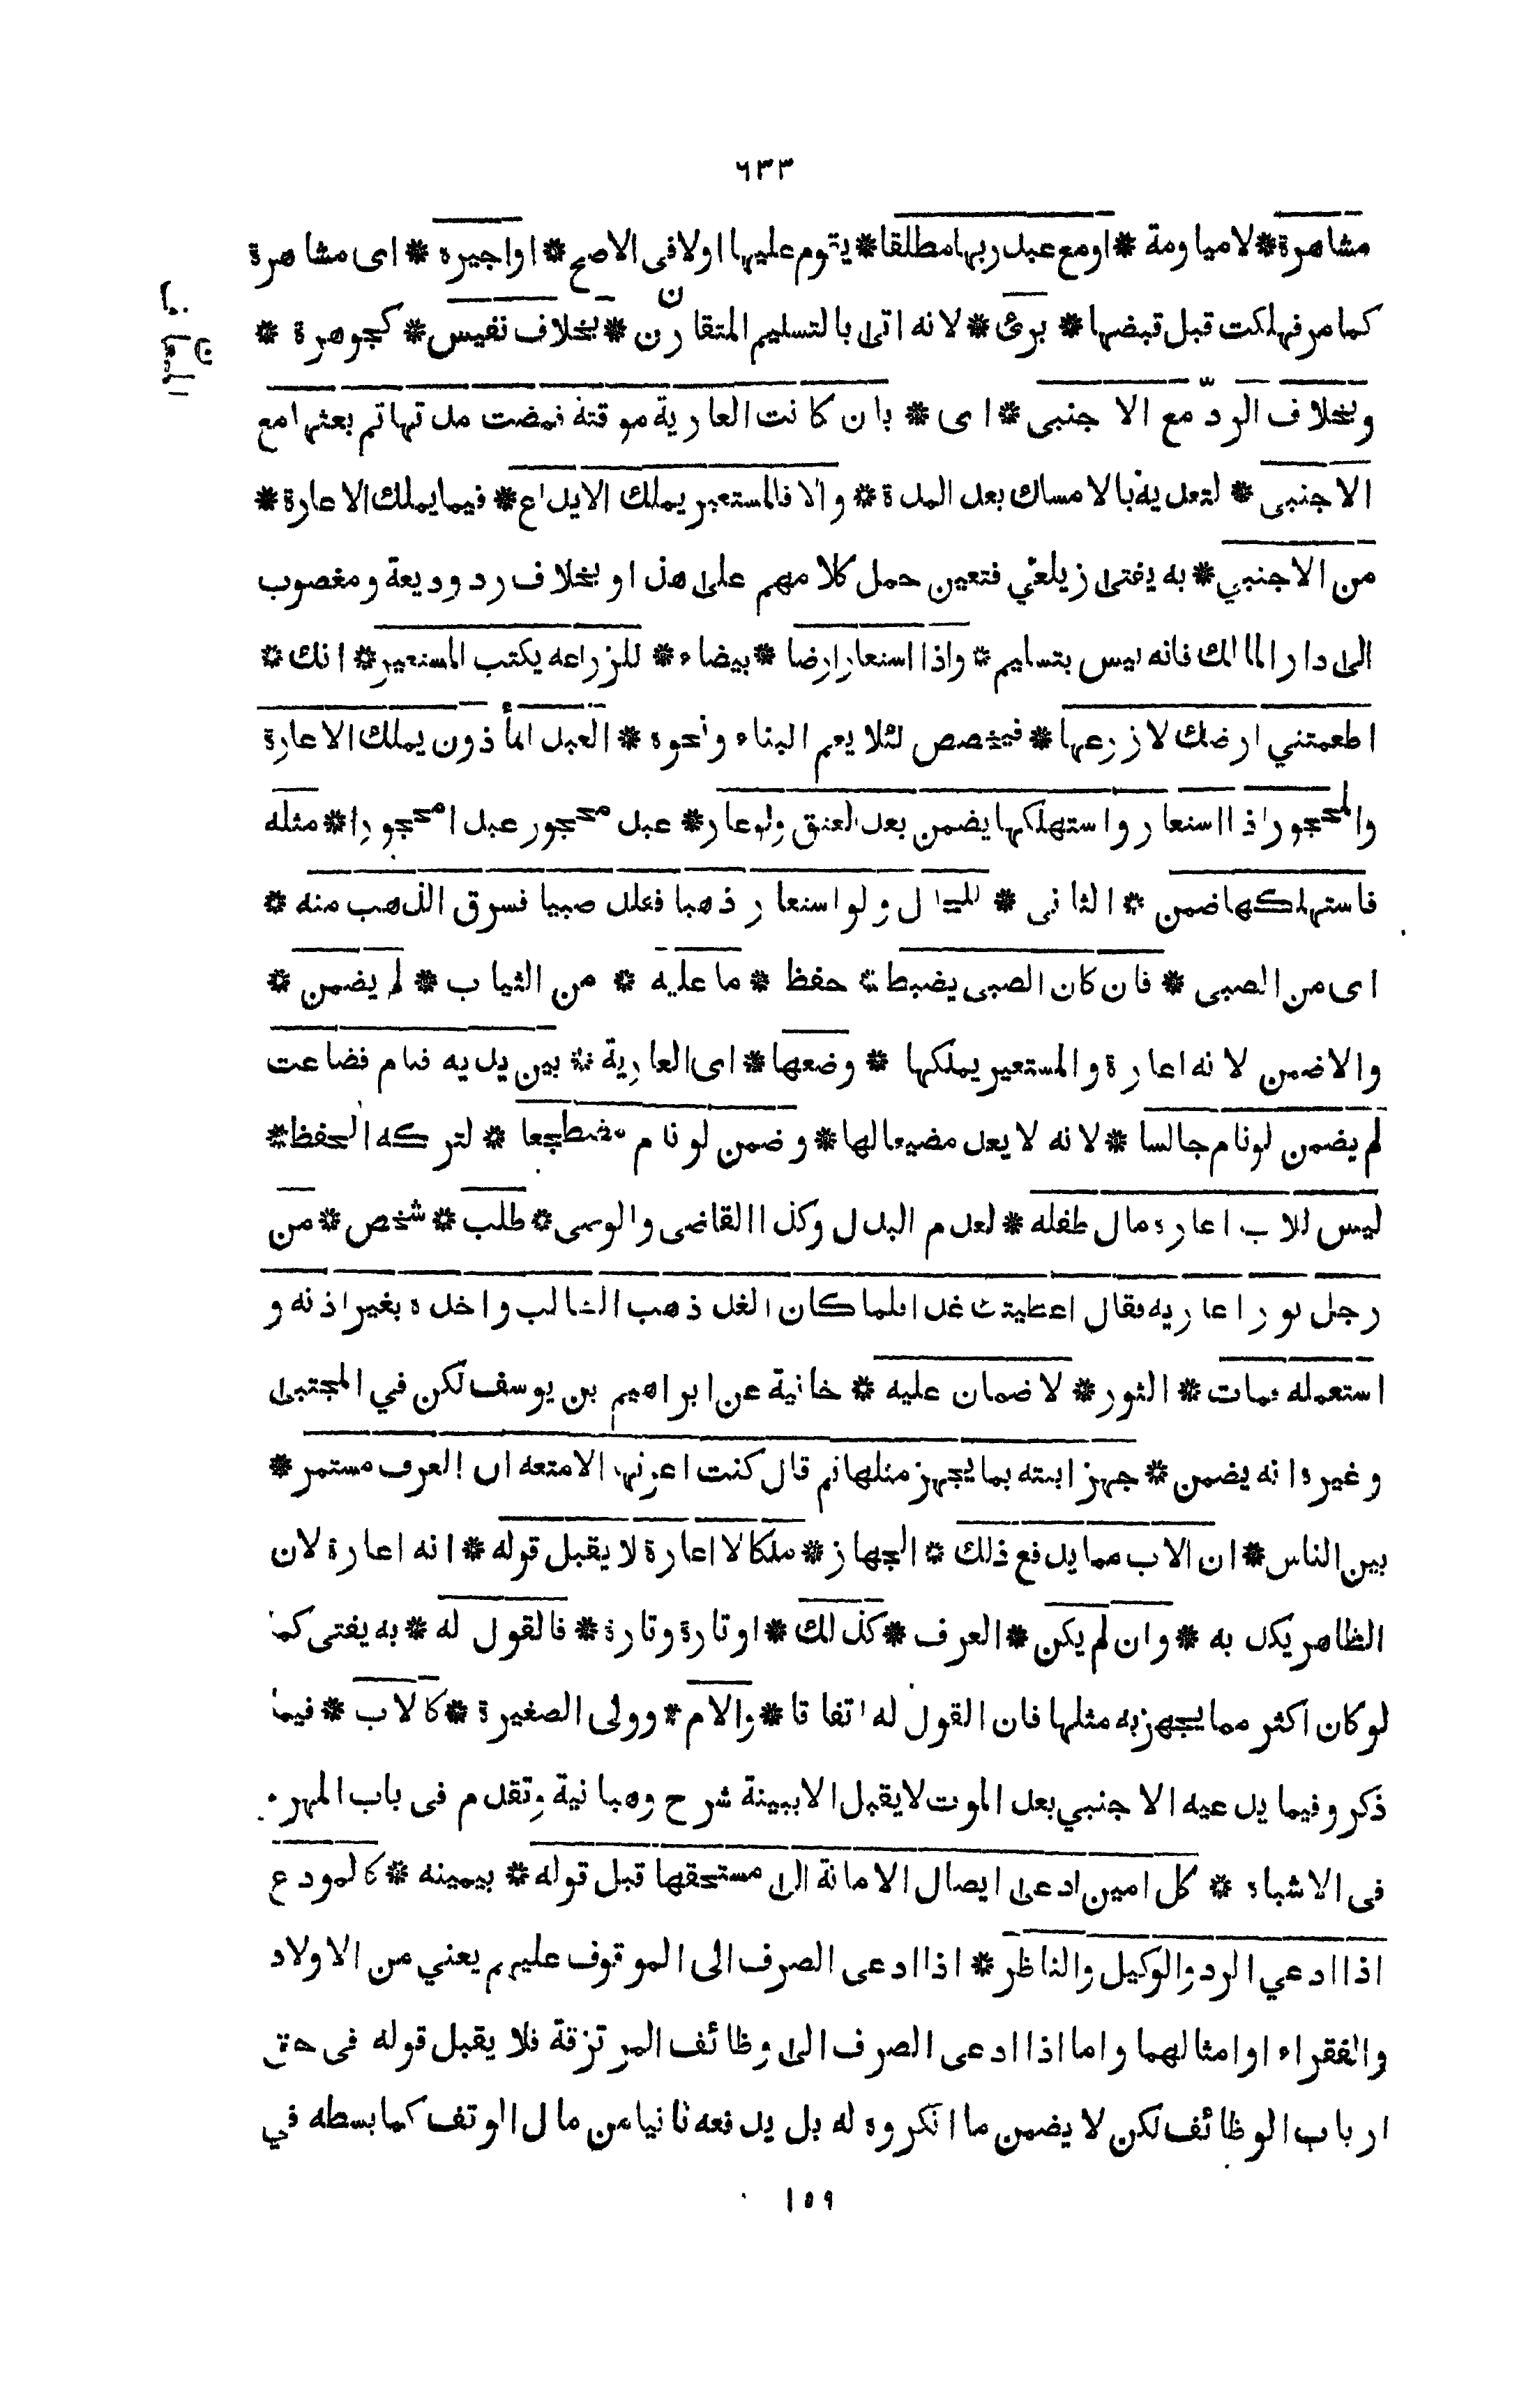 ٦٣٣
مشاهرة * لا مياومة * او مع عبد ربها مطلقا * يقوم عليها اولا فى الاصح * او اجيره * اى مشاهرة
كما مر فهلكت قبل قبضها * برئ * لانه اتى بالتسليم المتعارف * بخلاف نفيس * كجوهرة *
وبخلاف الردّ مع الاجنبى * اى * بان كانت العارية موقتة فمضت مدتها ثم بعثها مع
الاجنبى * لتعديه بالامساك بعد المدة * والا فالمستعير يملك الايداع * فيما يملك الاعارة *
من الاجنبي * به يفتى زيلعي فتعين حمل كلامهم على هذا وبخلاف رد وديعة ومغصوب
الى دار المالك فانه ليس بتسليم * واذا استعار ارضا * بيضاء * للزراعة يكتب المستعير * انك *
اطعمتني ارضك لازرعها * فيخصص لئلا يعم البناء ونحوه * العبد المأذون يملك الاعارة
والمحجور اذا استعار واستهلكها يضمن بعد العتق ولو عار * عبد محجور عبدا محجورا * مثله
فاستهلكها ضمن * الثانى * للحال ولو استعار ذهبا فقلد صبيا فسرق الذهب منه *
اى من الصبى * فان كان الصبى يضبط * حفظ * ما عليه * من الثياب * لم يضمن *
والا ضمن لانه اعارة والمستعير يملكها * وضعها * اى العارية * بين يديه فنام فضاعت
لم يضمن لو نام جالسا * لانه لا يعد مضيعا لها * وضمن لو نام مضطجعا * لتركه الحفظ *
ليس للاب اعارة مال طفله * لعدم البدل وكذا القاضى والوصى * طلب * شخص * من
رجل ثورا عارية فقال اعطيتك غدا فلما كان الغد ذهب الطالب واخذه بغير اذنه و
استعمله فمات * الثور * لا ضمان عليه * خانية عن ابراهيم بن يوسف لكن في المجتبى
وغيره انه يضمن * جهز ابنته بما يجهز مثلها ثم قال كنت اعرتها الامتعة ان العرف مستمر *
بين الناس * ان الاب مما يدفع ذلك * الجهاز * ملكا لا اعارة لا يقبل قوله * انه اعارة لان
الظاهر يكذبه * وان لم يكن * العرف * كذلك * او تارة وتارة * فالقول له * به يفتى كما
لو كان اكثر مما يجهز به مثلها فان القول له اتفاقا * والام * وولى الصغيرة * كالاب * فيما
ذكر وفيما يدعيه الاجنبي بعد الموت لا يقبل الا ببينة شرح وهبانية وتقدم فى باب المهر.
فى الاشباه * كل امين ادعى ايصال الامانة الى مستحقها قبل قوله * بيمينه * كالمودع
اذا ادعي الرد والوكيل والناظر * اذا ادعى الصرف الى الموقوف عليهم يعني من الاولاد
والفقراء او امثالهما واما اذا ادعى الصرف الى وظائف المرتزقة فلا يقبل قوله فى حق
ارباب الوظائف لكن لا يضمن ما انكروه له بل يدفعه ثانيا من مال الوقف كما بسطه في
١٥٩